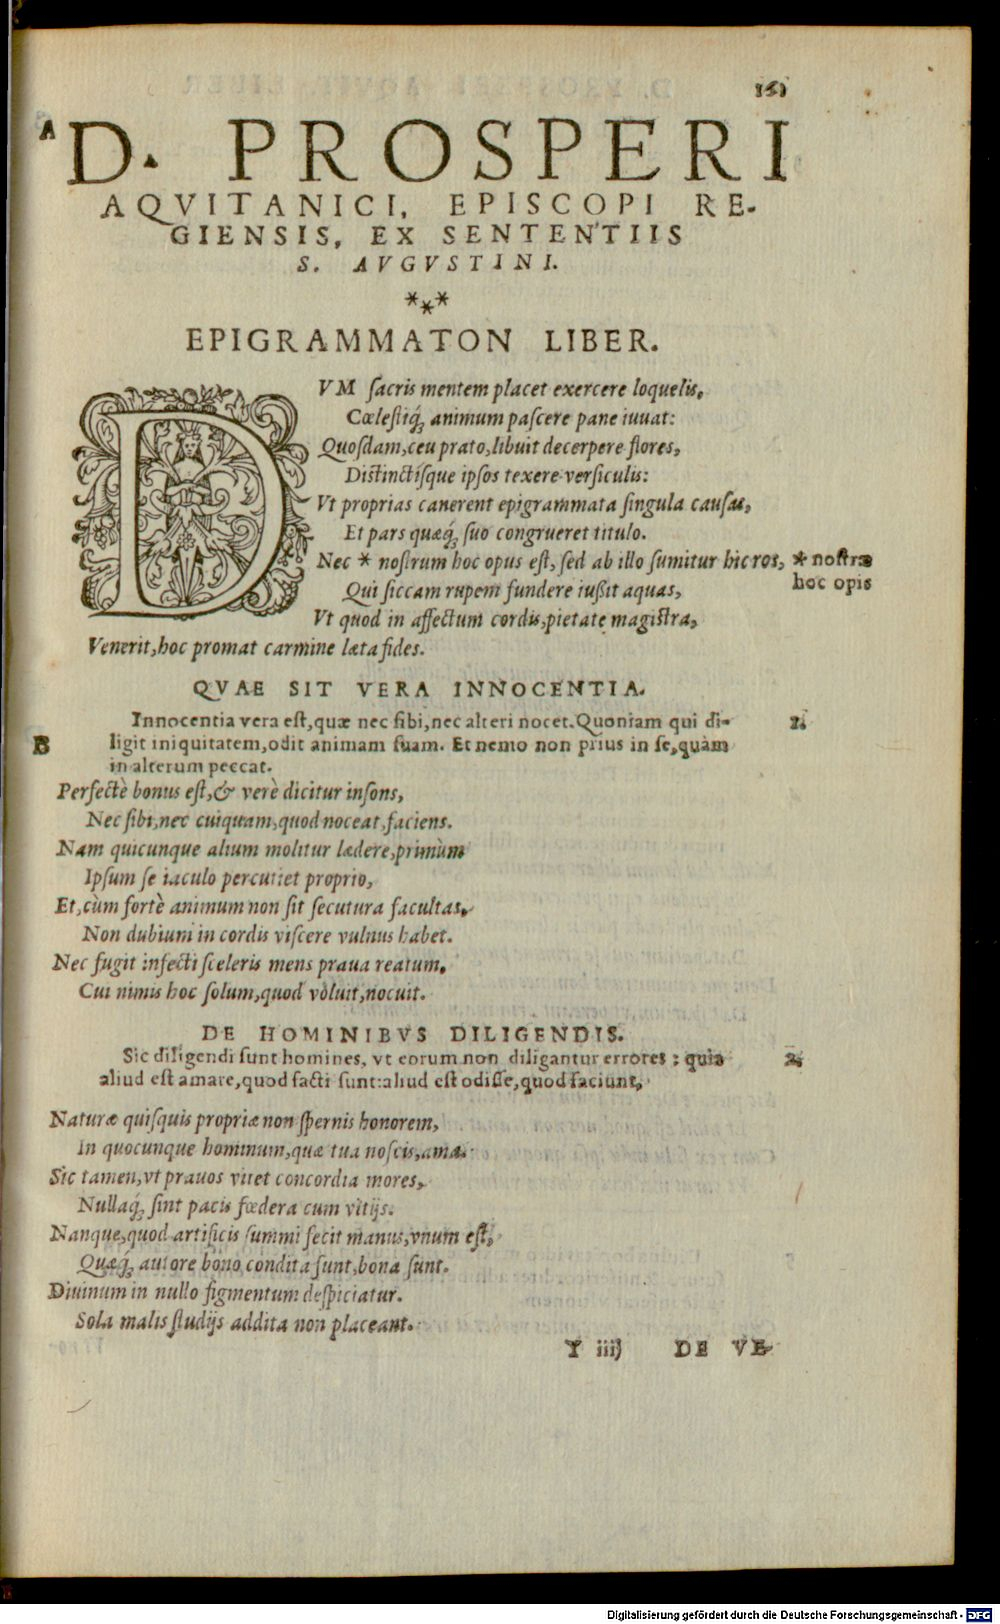 151
A
D. PROSPERI
AQVITANICI, EPISCOPI RE-
GIENSIS, EX SENTENTIIS
S. AVGVSTINI.
***
EPIGRAMMATON LIBER.
DVM sacris mentem placet exercere loquelis,
Cœlestiq́; animum pascere pane iuuat:
Quosdam, ceu prato, libuit decerpere flores,
Distinctisque ipsos texere versiculis:
Vt proprias canerent epigrammata singula causas,
Et pars quæq́; suo congrueret titulo.
Nec * nostrum hoc opus est, sed ab illo sumitur hic ros, * nostræ
hoc opis
Qui siccam rupem fundere iußit aquas,
Vt quod in affectum cordis, pietate magistra,
Venerit, hoc promat carmine læta fides.
QVAE SIT VERA INNOCENTIA.
Innocentia vera est, quæ nec sibi, nec alteri nocet. Quoniam qui di- 1.
B ligit iniquitatem, odit animam suam. Et nemo non prius in se, quàm
in alterum peccat.
Perfectè bonus est, & verè dicitur insons,
Nec sibi, nec cuiquam, quod noceat, faciens.
Nam quicunque alium molitur lædere, primùm
Ipsum se iaculo percutiet proprio,
Et, cùm fortè animum non sit secutura facultas,
Non dubium in cordis viscere vulnus habet.
Nec fugit infecti sceleris mens praua reatum,
Cui nimis hoc solum, quod voluit, nocuit.
DE HOMINIBVS DILIGENDIS.
Sic diligendi sunt homines, vt eorum non diligantur errores: quia 2.
aliud est amare, quod facti sunt: aliud est odisse, quod faciunt,
Naturæ quisquis propriæ non spernis honorem,
In quocunque hominum, quæ tua noscis, ama.
Sic tamen, vt prauos vitet concordia mores,
Nullaq́; sint pacis fœdera cum vitijs.
Nanque, quod artificis summi fecit manus, vnum est,
Quæq́; autore bono condita sunt, bona sunt.
Diuinum in nullo figmentum despiciatur.
Sola malis studijs addita non placeant.
Y iiij DE VE-
Digitalisierung gefördert durch die Deutsche Forschungsgemeinschaft - DFG